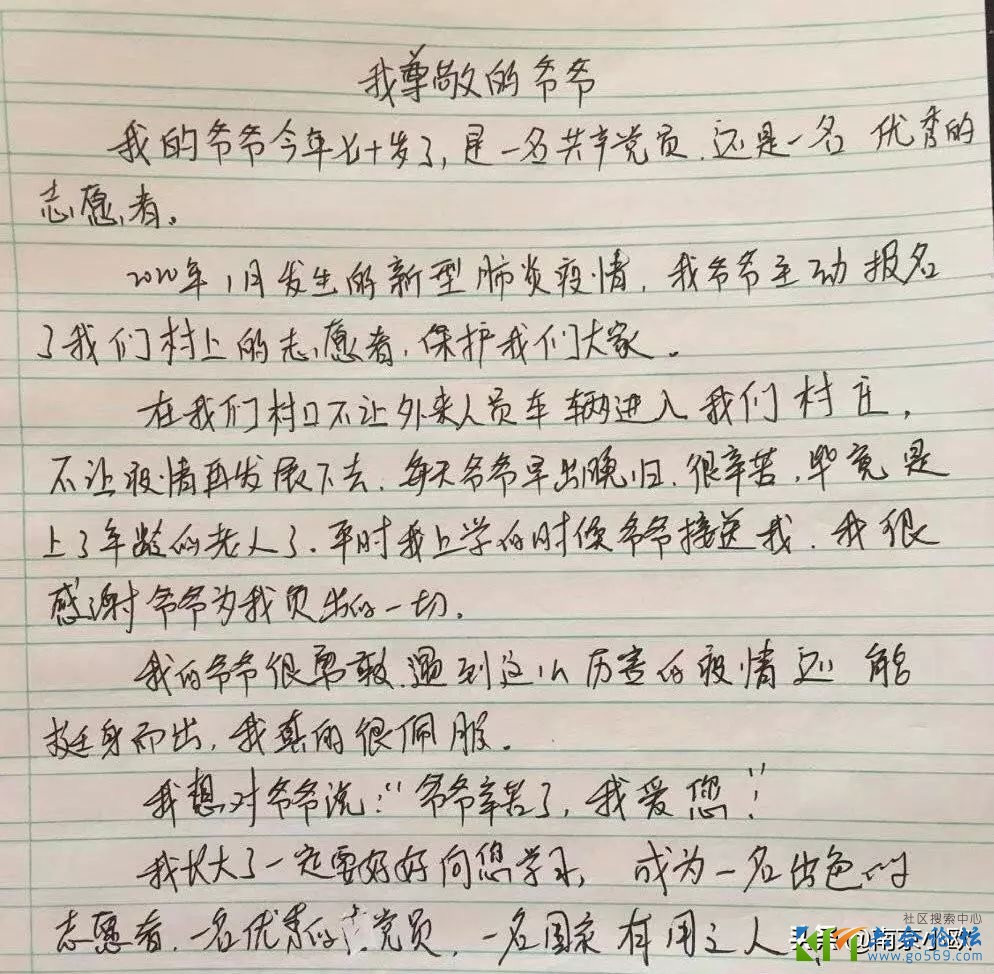 我尊敬的爷爷
我的爷爷今年七十岁了,是一名共产党员.还是一名优秀的
志愿者。
2020年1月发生的新型肺炎疫情,我爷爷主动报名
了我们村上的志愿者,保护我们大家。
在我们村口不让外来人员车辆进入我们村庄,
不让疫情再发展下去,每天爷爷早出晚归,很辛苦,毕竟是
上了年龄的老人了.平时我上学的时候爷爷接送我.我很
感谢爷爷为我付出的一切.
我的爷爷很勇敢.遇到这么厉害的疫情还能
挺身而出,我真的很佩服。
我想对爷爷说:"爷爷辛苦了,我爱您"!
我长大了一定要好好向您学习, 成为一名出色的
志愿者.一名优秀的党员,一名国家有用之人
社区搜索中心
@南京小欧
论坛
www.go569.com